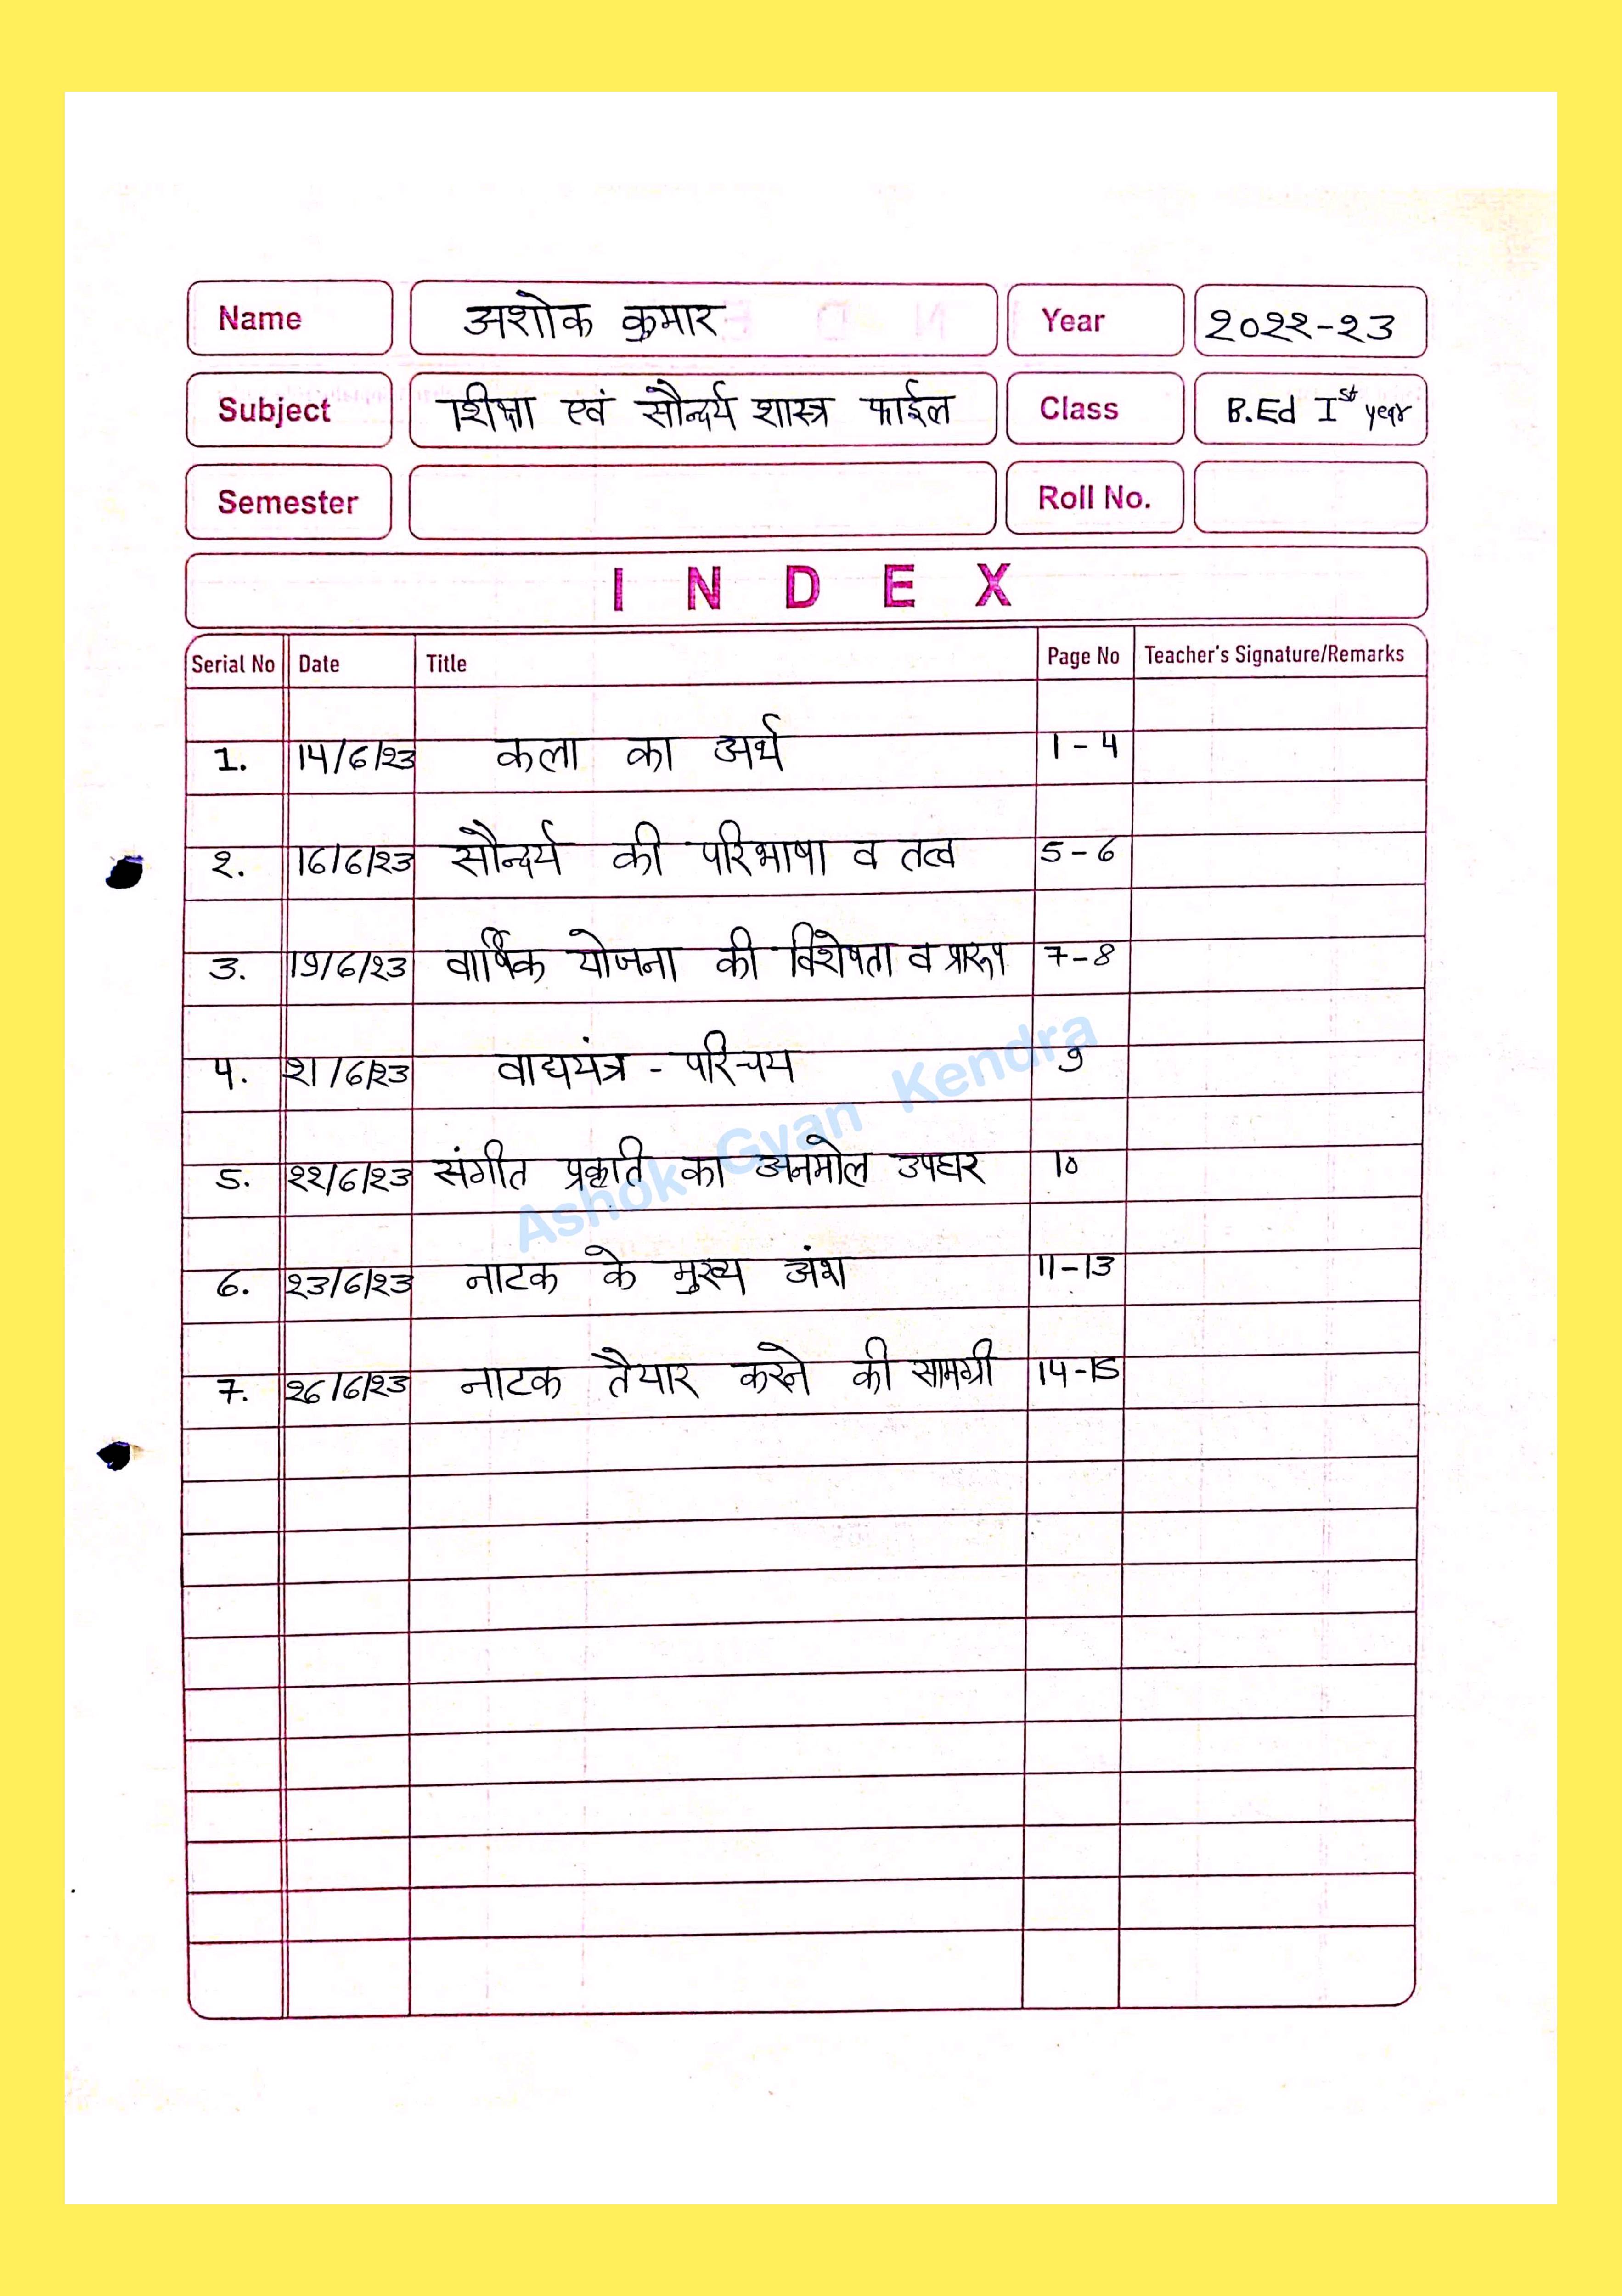 Name अशोक कुमार Year 2022-23
Subject शिक्षा एवं सौन्दर्य शास्त्र फाईल Class B.Ed Ist year
Semester Roll No.
INDEX
Serial No Date Title Page No Teacher's Signature/Remarks
1. 14/6/23 कला का अर्थ 1-4
2. 16/6/23 सौन्दर्य की परिभाषा व तत्व 5-6
3. 19/6/23 वार्षिक योजना की विशेषता व प्रारूप 7-8
4. 21/6/23 वाद्ययंत्र - परिचय 9
5. 22/6/23 संगीत प्रकृति का अनमोल उपहार 10
Ashok Gyan Kendra
6. 23/6/23 नाटक के मुख्य अंश 11-13
7. 26/6/23 नाटक तैयार करने की सामग्री 14-15